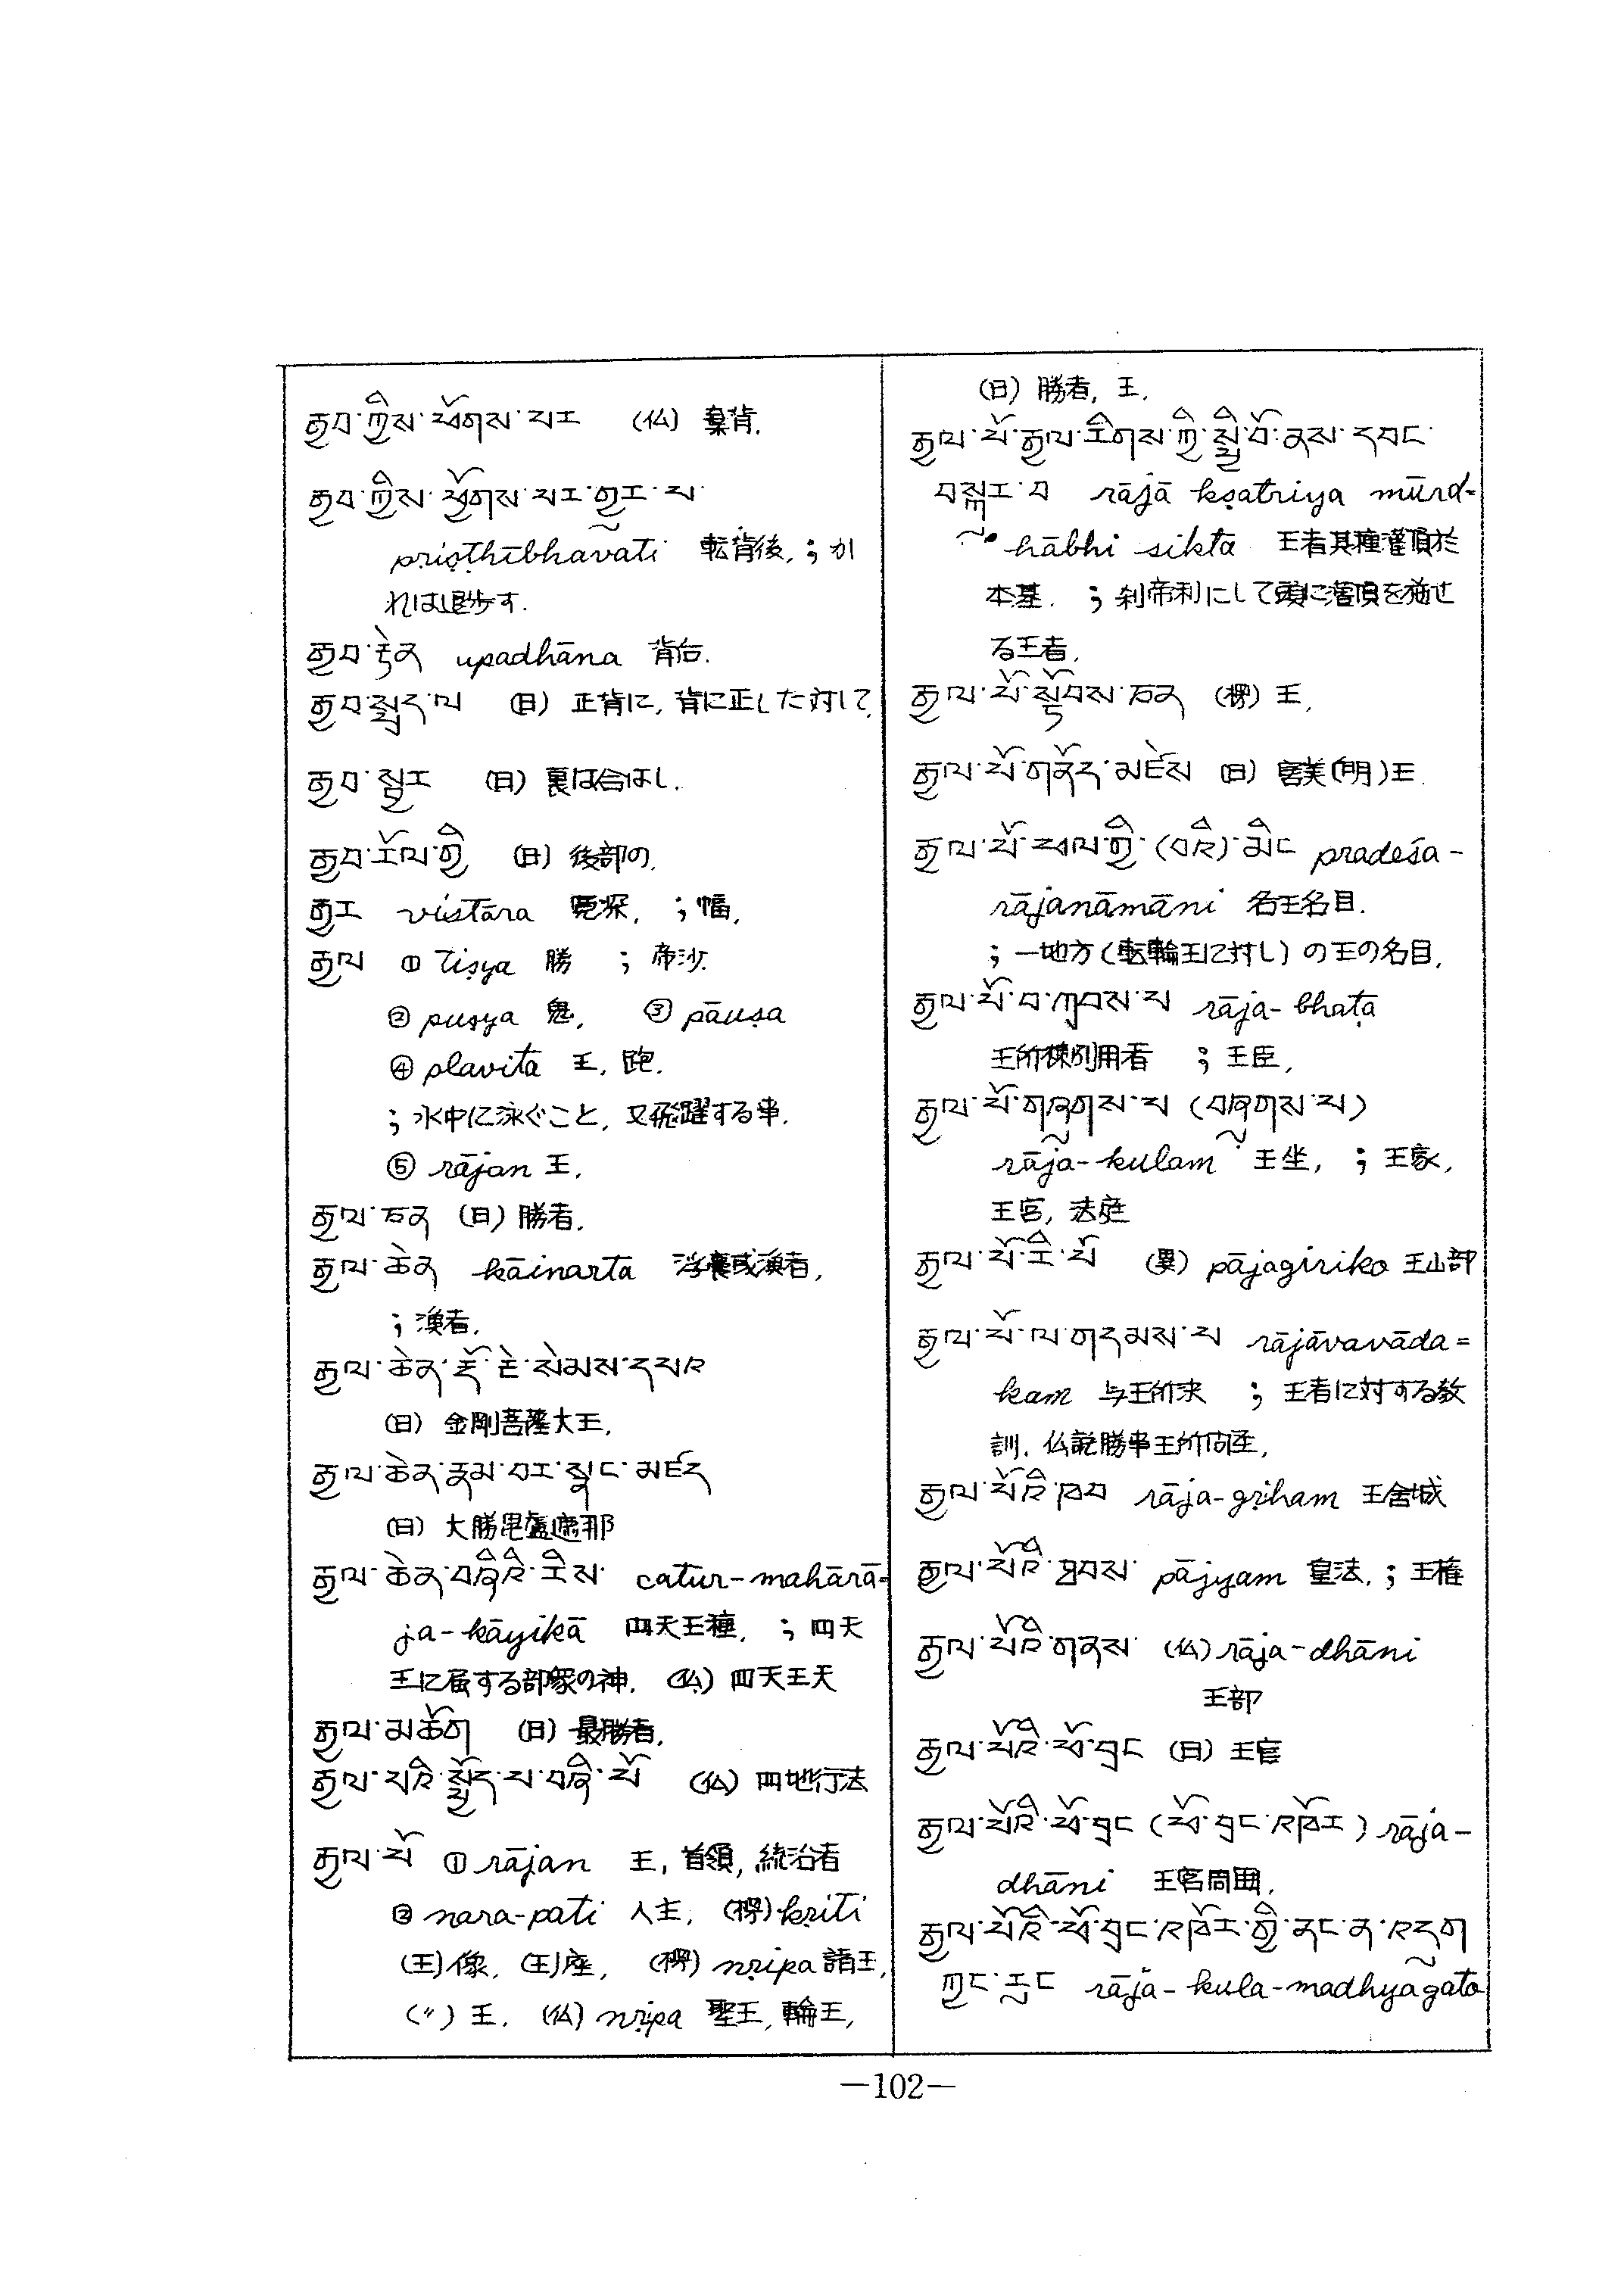 རྒྱབ་ཀྱིས་ཕོགས་པར (仏) 棄背.
རྒྱབ་ཀྱིས་ཕྱོགས་པར་གྱུར་པ་
pṛiṣṭhībhavati 転背後, ; か
れは退歩す.
རྒྱབ་རྟེན upadhāna 背台.
རྒྱབ་སྲང་ལ (日) 正背に, 背に正した対して,
རྒྱབ་སྦྱར (日) 裏は合はし.
རྒྱབ་རོལ་གྱི (日) 後部の.
རྒྱར vistāra 寛深, ; 幅,
རྒྱལ ① Tiṣya 勝 ; 帝沙.
② puṣya 鬼, ③ pāuṣa
④ plavita 王, 跑.
; 水中に泳ぐこと, 又飛躍する事.
⑤ rājan 王,
རྒྱལ་ཅན (日) 勝者.
རྒྱལ་ཆེན kāinarta 浮嚢或漁者,
; 漁者.
རྒྱལ་ཆེན་རྡོ་རྗེ་སེམས་དཔའ
(日) 金剛菩薩大王,
རྒྱལ་ཆེན་རྣམ་པར་སྣང་མཛད
(日) 大勝毘盧遮那
རྒྱལ་ཆེན་བཞིའི་རིས་ catur-mahārā-
ja-kāyikā 四天王種, ; 四天
王に属する部衆の神. (仏) 四天王天
རྒྱལ་མཆོག (日) 最勝者,
རྒྱལ་པའི་སྤྱོད་པ་བཞི་པོ (仏) 四地行法
རྒྱལ་པོ ① rājan 王, 首領, 統治者
② nara-pati 人主, (梛) kṛiti
(王)像, (王)座, (梛) nṛipa 諸王,
(〃) 王. (仏) nṛipa 聖王, 輪王,
(日) 勝者, 王.
རྒྱལ་པོ་རྒྱལ་རིགས་ཀྱི་སྤྱི་བོ་ནས་དབང་
བསྐུར་བ rājā kṣatriya mūrd-
hābhi sikta 王者其種灌頂於
本基. ; 刹帝利にして頭に灌頂を施せ
る王者.
རྒྱལ་པོ་སྟོབས་ཅན (梛) 王,
རྒྱལ་པོ་གནོད་མཛེས (日) 害美(明)王.
རྒྱལ་པོ་ཕལ་གྱི་(བའི)་མིང pradeśa-
rājanāmāni 名王名目.
; 一地方(転輪王に対し)の王の名目,
རྒྱལ་པོ་བ་ཀྲབས་པ rāja-bhaṭa
王所揀別用者 ; 王臣,
རྒྱལ་པོ་གཞགས་པ (བཞགས་པ)
rāja-kulam 王坐, ; 王家,
王宮, 法庭
རྒྱལ་པོ་རི་པོ (異) pājagiriko 王山部
རྒྱལ་པོ་ལ་གདམས་པ rājāvavāda=
kam 与王所来 ; 王者に対する教
訓. 仏説勝軍王所问至,
རྒྱལ་པོའི་ཁབ rāja-gṛiham 王舎城
རྒྱལ་པོའི་ཐབས pājyam 皇法, ; 王権
རྒྱལ་པོའི་གནས་ (仏) rāja-dhāni
王部
རྒྱལ་པོའི་ཕོ་བྲང (日) 王官
རྒྱལ་པོའི་ཕོ་བྲང (ཕོ་བྲང་འཁོར) rāja-
dhāni 王宮周囲,
རྒྱལ་པོའི་ཕོ་བྲང་འཁོར་གྱི་ནང་ན་འདག
ཀྱང་རུང rāja-kula-madhyagato
—102—